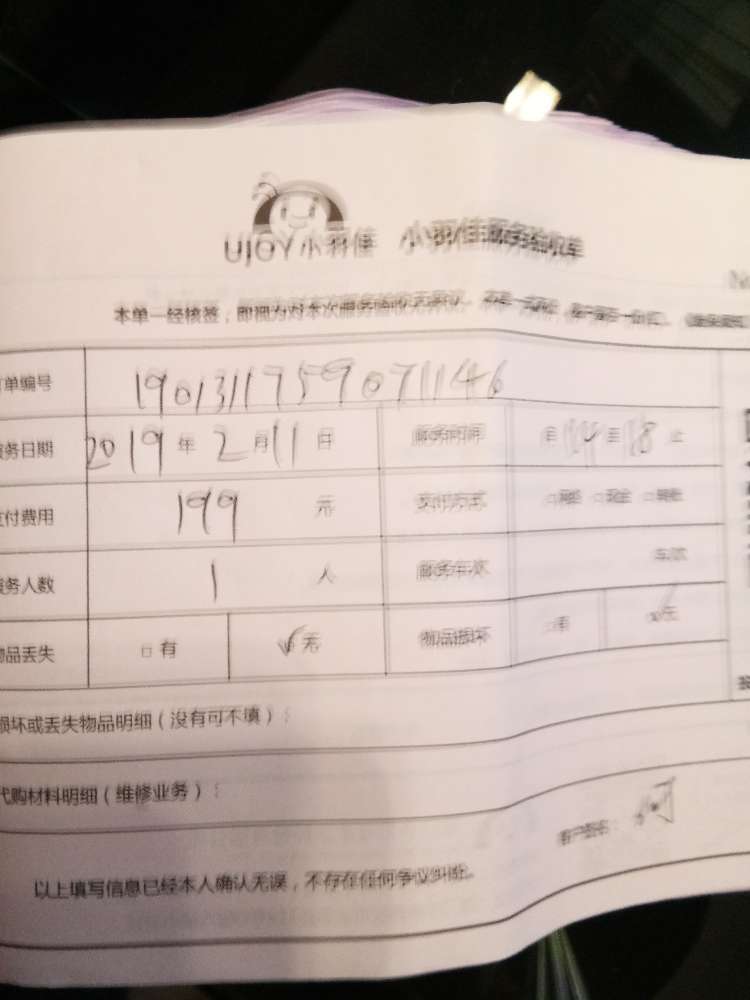 UJOY小羽佳 小羽佳服务验收单
本单一经核签，即视为对本次服务验收无异议。
单编号 19013117590711146
务日期 2019年2月11日 服务时间 14至18止
付费用 199元 支付方式 □现金
务人数 1人 服务车次 车次
品丢失 □有 ✓无 物品损坏 □有 ✓无
损坏或丢失物品明细（没有可不填）：
代购材料明细（维修业务）：
客户签名：
以上填写信息已经本人确认无误，不存在任何争议纠纷。